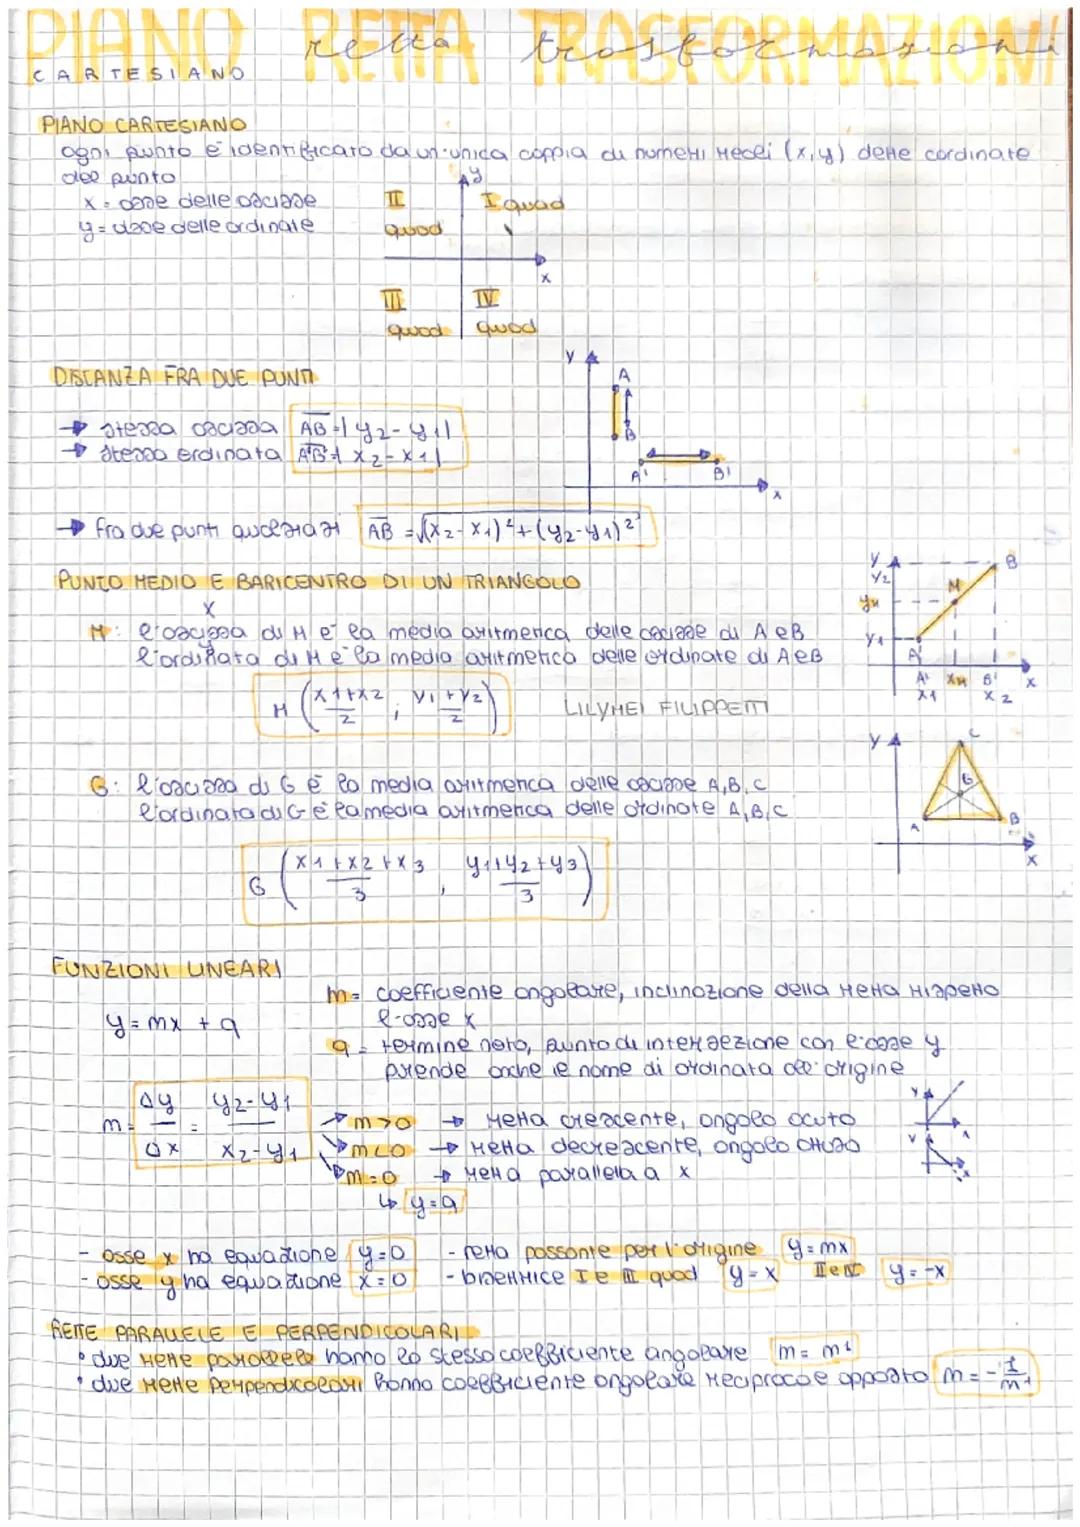 PIANO RETTA TRASFORMAZIONI
CARTESIANO retta trasformazioni
PIANO CARTESIANO
ogni punto è identificato da un'unica coppia di numeri reali (x,y) dette cordinate
del punto
x = asse delle ascisse
y = asse delle ordinate
y
II I quad
quad
x
III IV
quad quad
DISTANZA FRA DUE PUNTI
→ stessa ascissa AB=|y2-y1|
→ stessa ordinata AB=|x2-x1|
y A B A' B' x
→ fra due punti qualsiasi AB = √(x2-x1)²+(y2-y1)²
PUNTO MEDIO E BARICENTRO DI UN TRIANGOLO
x
M: l'ascissa di M è la media aritmetica delle ascisse di A e B
l'ordinata di M è la media aritmetica delle ordinate di A e B
M (x1+x2/2 ; y1+y2/2)
LILYMEI FILIPPETTI
y B
y2 M
yM
y1 A
A' xM B' x
x1 x2
G: l'ascissa di G è la media aritmetica delle ascisse A,B,C
l'ordinata di G è la media aritmetica delle ordinate A,B,C
G (x1+x2+x3/3 , y1+y2+y3/3)
y C
G
A B
x
FUNZIONI LINEARI
m= coefficiente angolare, inclinazione della retta rispetto
l'asse x
y=mx+q
q = termine noto, punto di intersezione con l'asse y
prende anche il nome di ordinata all'origine
m= Δy/Δx = y2-y1/x2-y1
m>0 → retta crescente, angolo acuto
m<0 → retta decrescente, angolo ottuso
m=0 → retta parallela a x
↳ y=q
- asse x ha equazione y=0 - retta passante per l'origine y=mx
- asse y ha equazione x=0 - bisettrice I e III quad y=x II e IV y=-x
RETTE PARALLELE E PERPENDICOLARI
• due rette parallele hanno lo stesso coefficiente angolare m=m'
• due rette perpendicolari hanno coefficiente angolare reciproco e opposto m=-1/m'